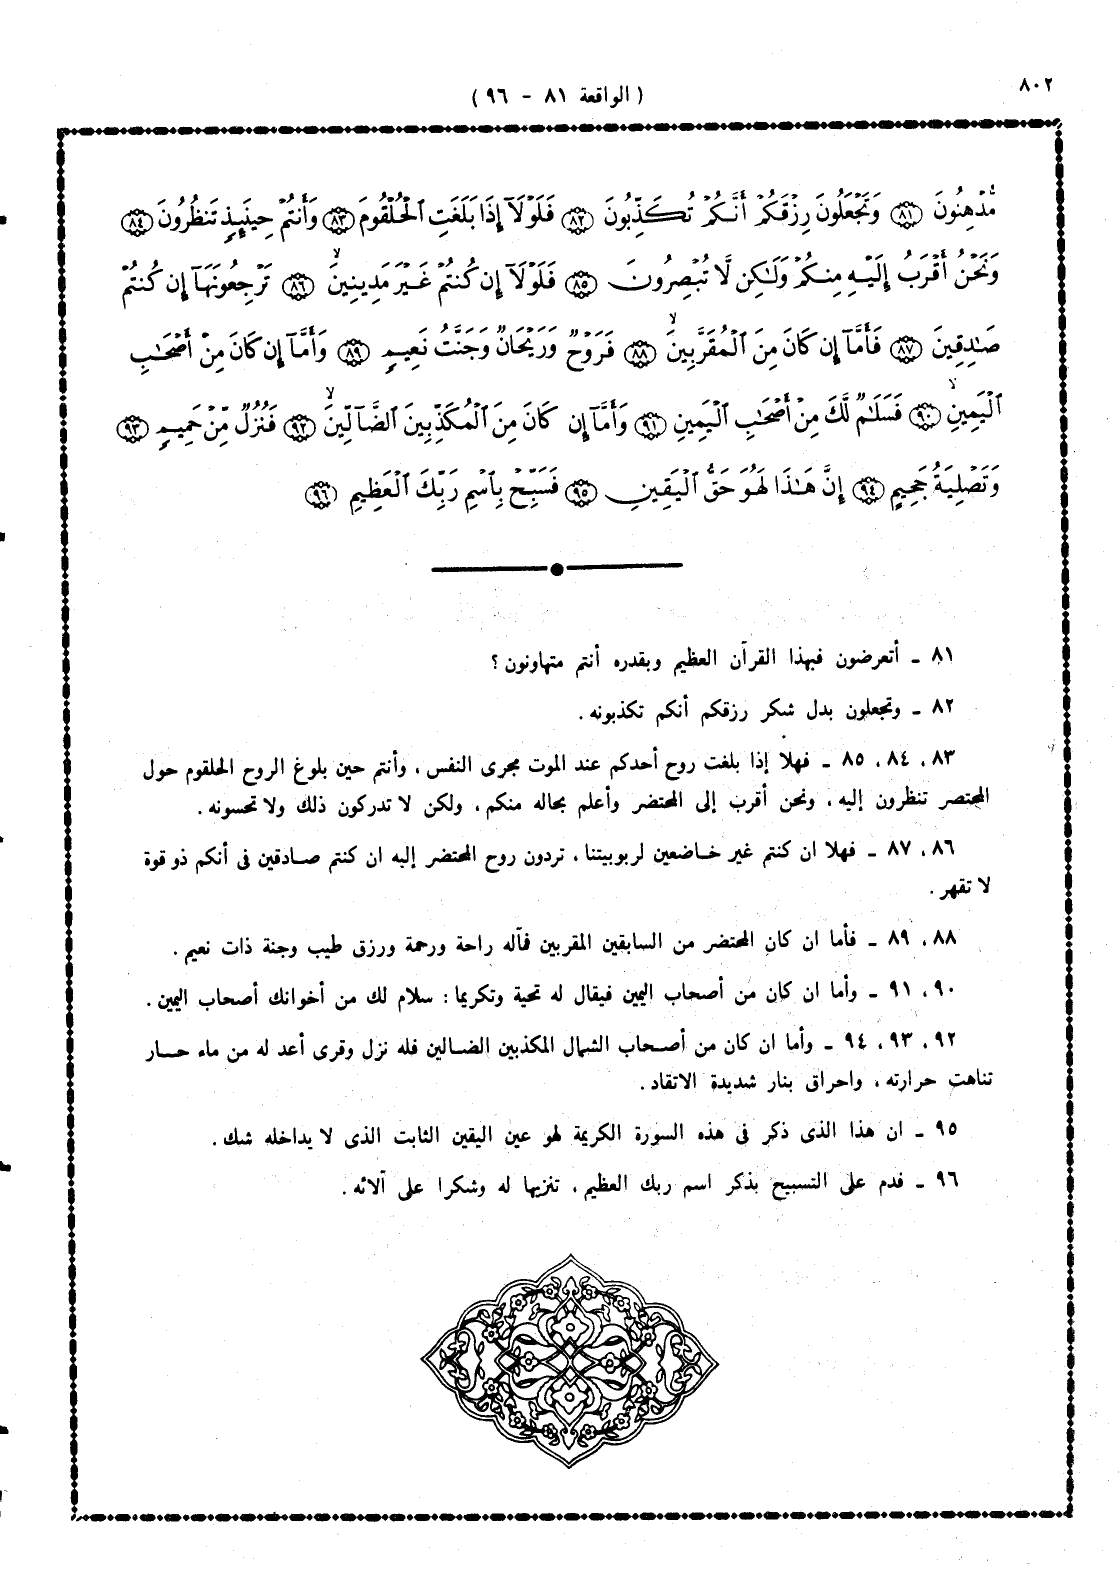 ٨٠٢
( الواقعة ٨١ – ٩٦ )
مُّدْهِنُونَ ٨١ وَتَجْعَلُونَ رِزْقَكُمْ أَنَّكُمْ تُكَذِّبُونَ ٨٢ فَلَوْلَآ إِذَا بَلَغَتِ ٱلْحُلْقُومَ ٨٣ وَأَنتُمْ حِينَئِذٍ تَنظُرُونَ ٨٤
وَنَحْنُ أَقْرَبُ إِلَيْهِ مِنكُمْ وَلَٰكِن لَّا تُبْصِرُونَ ٨٥ فَلَوْلَآ إِن كُنتُمْ غَيْرَ مَدِينِينَ ۙ ٨٦ تَرْجِعُونَهَآ إِن كُنتُمْ
صَٰدِقِينَ ٨٧ فَأَمَّآ إِن كَانَ مِنَ ٱلْمُقَرَّبِينَ ۙ ٨٨ فَرَوْحٌ وَرَيْحَانٌ وَجَنَّتُ نَعِيمٍ ٨٩ وَأَمَّآ إِن كَانَ مِنْ أَصْحَٰبِ
ٱلْيَمِينِ ۙ ٩٠ فَسَلَٰمٌ لَّكَ مِنْ أَصْحَٰبِ ٱلْيَمِينِ ٩١ وَأَمَّآ إِن كَانَ مِنَ ٱلْمُكَذِّبِينَ ٱلضَّآلِّينَ ۙ ٩٢ فَنُزُلٌ مِّنْ حَمِيمٍ ٩٣
وَتَصْلِيَةُ جَحِيمٍ ٩٤ إِنَّ هَٰذَا لَهُوَ حَقُّ ٱلْيَقِينِ ٩٥ فَسَبِّحْ بِٱسْمِ رَبِّكَ ٱلْعَظِيمِ ٩٦
٨١ ـ أتعرضون فبهذا القرآن العظيم وبقدره أنتم متهاونون ؟
٨٢ ـ وتجعلون بدل شكر رزقكم أنكم تكذبونه .
٨٣ ، ٨٤ ، ٨٥ ـ فهلا إذا بلغت روح أحدكم عند الموت مجرى النفس ، وأنتم حين بلوغ الروح الحلقوم حول
المحتضر تنظرون إليه ، ونحن أقرب إلى المحتضر وأعلم بحاله منكم ، ولكن لا تدركون ذلك ولا تحسونه .
٨٦ ، ٨٧ ـ فهلا ان كنتم غير خاضعين لربوبيتنا ، تردون روح المحتضر إليه ان كنتم صادقين فى أنكم ذو قوة
لا تقهر .
٨٨ ، ٨٩ ـ فأما ان كان المحتضر من السابقين المقربين فمآله راحة ورحمة ورزق طيب وجنة ذات نعيم .
٩٠ ، ٩١ ـ وأما ان كان من أصحاب اليمين فيقال له تحية وتكريما : سلام لك من أخوانك أصحاب اليمين .
٩٢ ، ٩٣ ، ٩٤ ـ وأما ان كان من أصحاب الشمال المكذبين الضالين فله نزل وقرى أعد له من ماء حار
تناهت حرارته ، واحراق بنار شديدة الاتقاد .
٩٥ ـ ان هذا الذى ذكر فى هذه السورة الكريمة لهو عين اليقين الثابت الذى لا يداخله شك .
٩٦ ـ فدم على التسبيح بذكر اسم ربك العظيم ، تنزيها له وشكرا على آلائه .